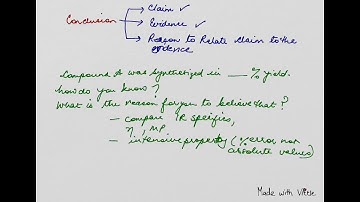 Claim ✓
Conclusion Evidence ✓
Reason to Relate claim to the
evidence
Compound A was synthesized in ___ % yield.
how do you know?
What is the reason for you to believe that?
– compare IR specifies,
η, MP
– intensive property (% error not
absolute values)
Made with VIttle